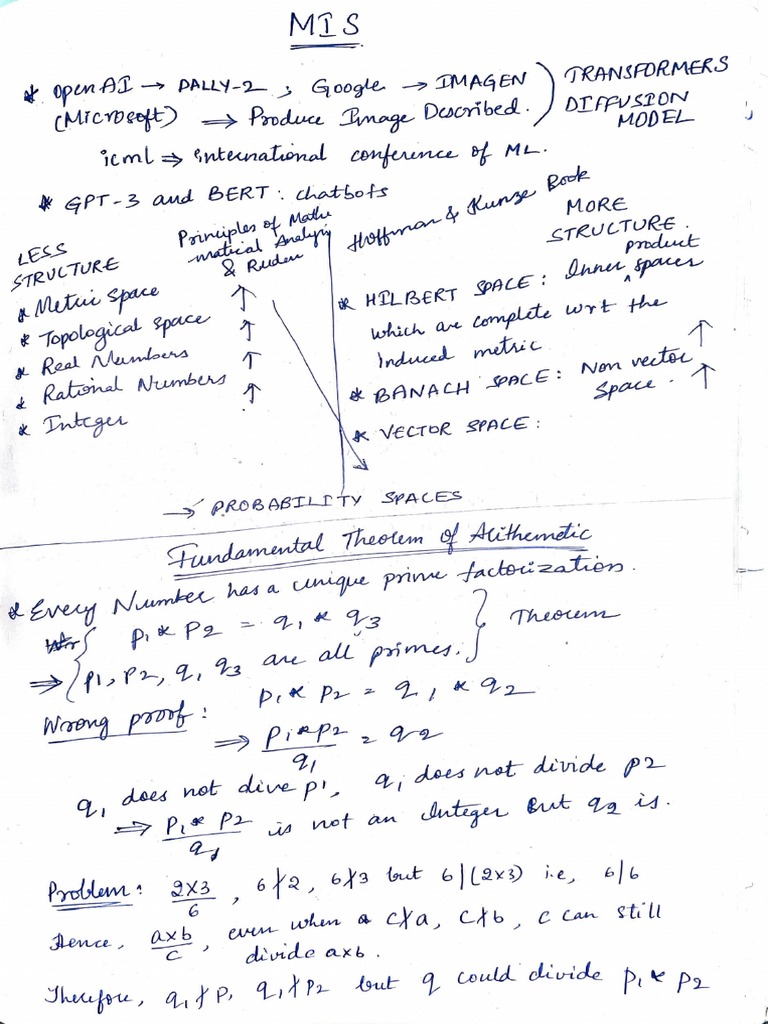 MIS
* OpenAI → DALLY-2 , Google → IMAGEN ) TRANSFORMERS
(Microsoft) ⇒ Produce Image Described. ) DIFFUSION
MODEL
icml ⇒ International conference of ML.
* GPT-3 and BERT : chatbots
LESS
STRUCTURE
Principles of Mathe
matical Analysis
& Rudin
* Metric Space ↑
* Topological Space ↑
* Real Numbers ↑
* Rational Numbers ↑
* Integer
Hoffman & Kunze Book
MORE
STRUCTURE.
* HILBERT SPACE : Inner ^product spaces
which are complete wrt the
Induced metric ↑
* BANACH SPACE : Non vector
Space. ↑
* VECTOR SPACE :
→ PROBABILITY SPACES
Fundamental Theorem of Arithemetic
* Every Number has a unique prime factorization.
{ p1 * p2 = q1 * q3 } Theorem
⇒ { p1, p2, q1 q3 are all primes. }
Wrong proof : p1 * p2 = q1 * q2
⇒ p1*p2/q1 = q2
q1 does not dive p1, q1 does not divide p2
⇒ p1 * p2/q1 is not an Integer But q2 is.
Problem : 2x3/6 , 6∤2, 6∤3 but 6|(2x3) i.e, 6|6
Hence, axb/c, even when c∤a, c∤b, c can still
divide axb.
Therefore, q1∤p1 q1∤p2 but q could divide p1 * p2